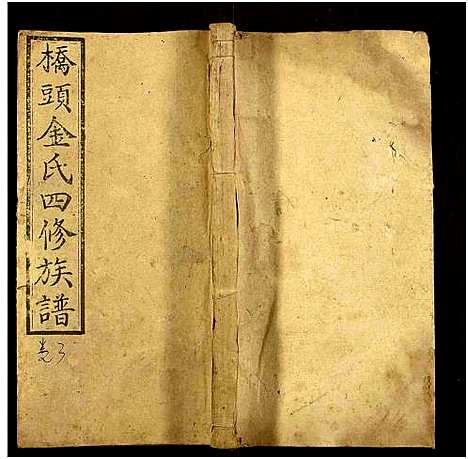 橋頭金氏四修族譜
卷3